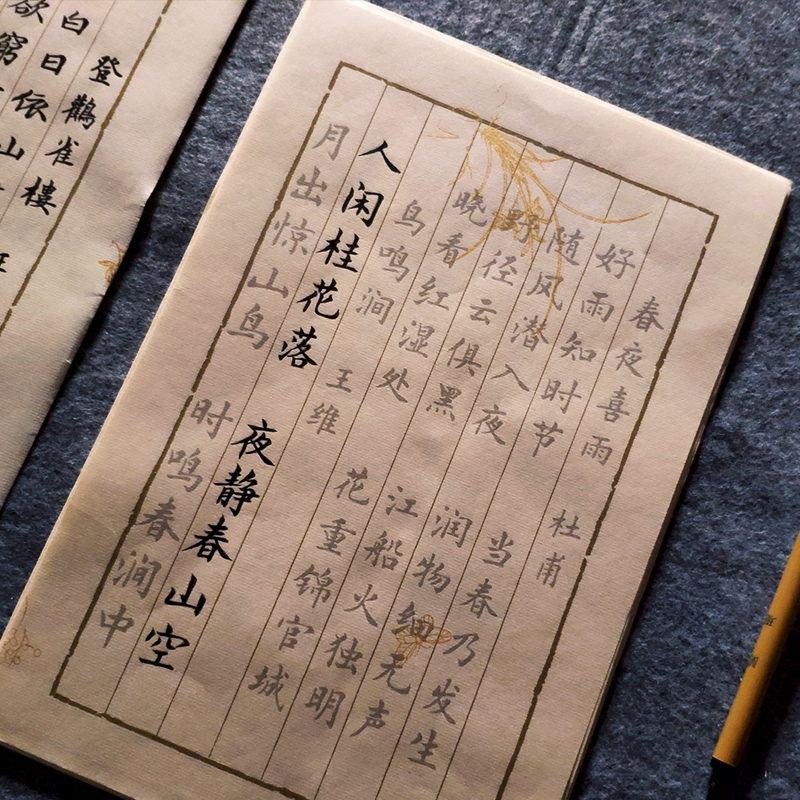 春夜喜雨 杜甫
好雨知时节 当春乃发生
随风潜入夜 润物细无声
野径云俱黑 江船火独明
晓看红湿处 花重锦官城
鸟鸣涧 王维
人闲桂花落 夜静春山空
月出惊山鸟 时鸣春涧中
登鸛雀樓
白日依山
欲窮